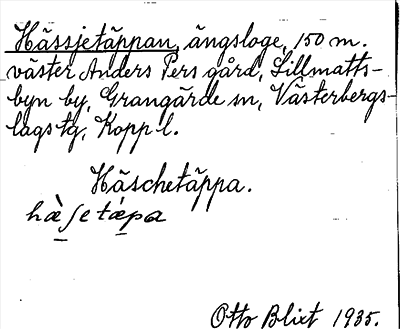 Hässjetäppan, ängsloge, 150 m.
väster Anders Pers gård, Lillmatts-
byn by, Grangärde sn, Västerbergs-
lags tg, Kopp l.
Häschetäppa.
hæ̀ʃetǽpa
Otto Blixt 1935.